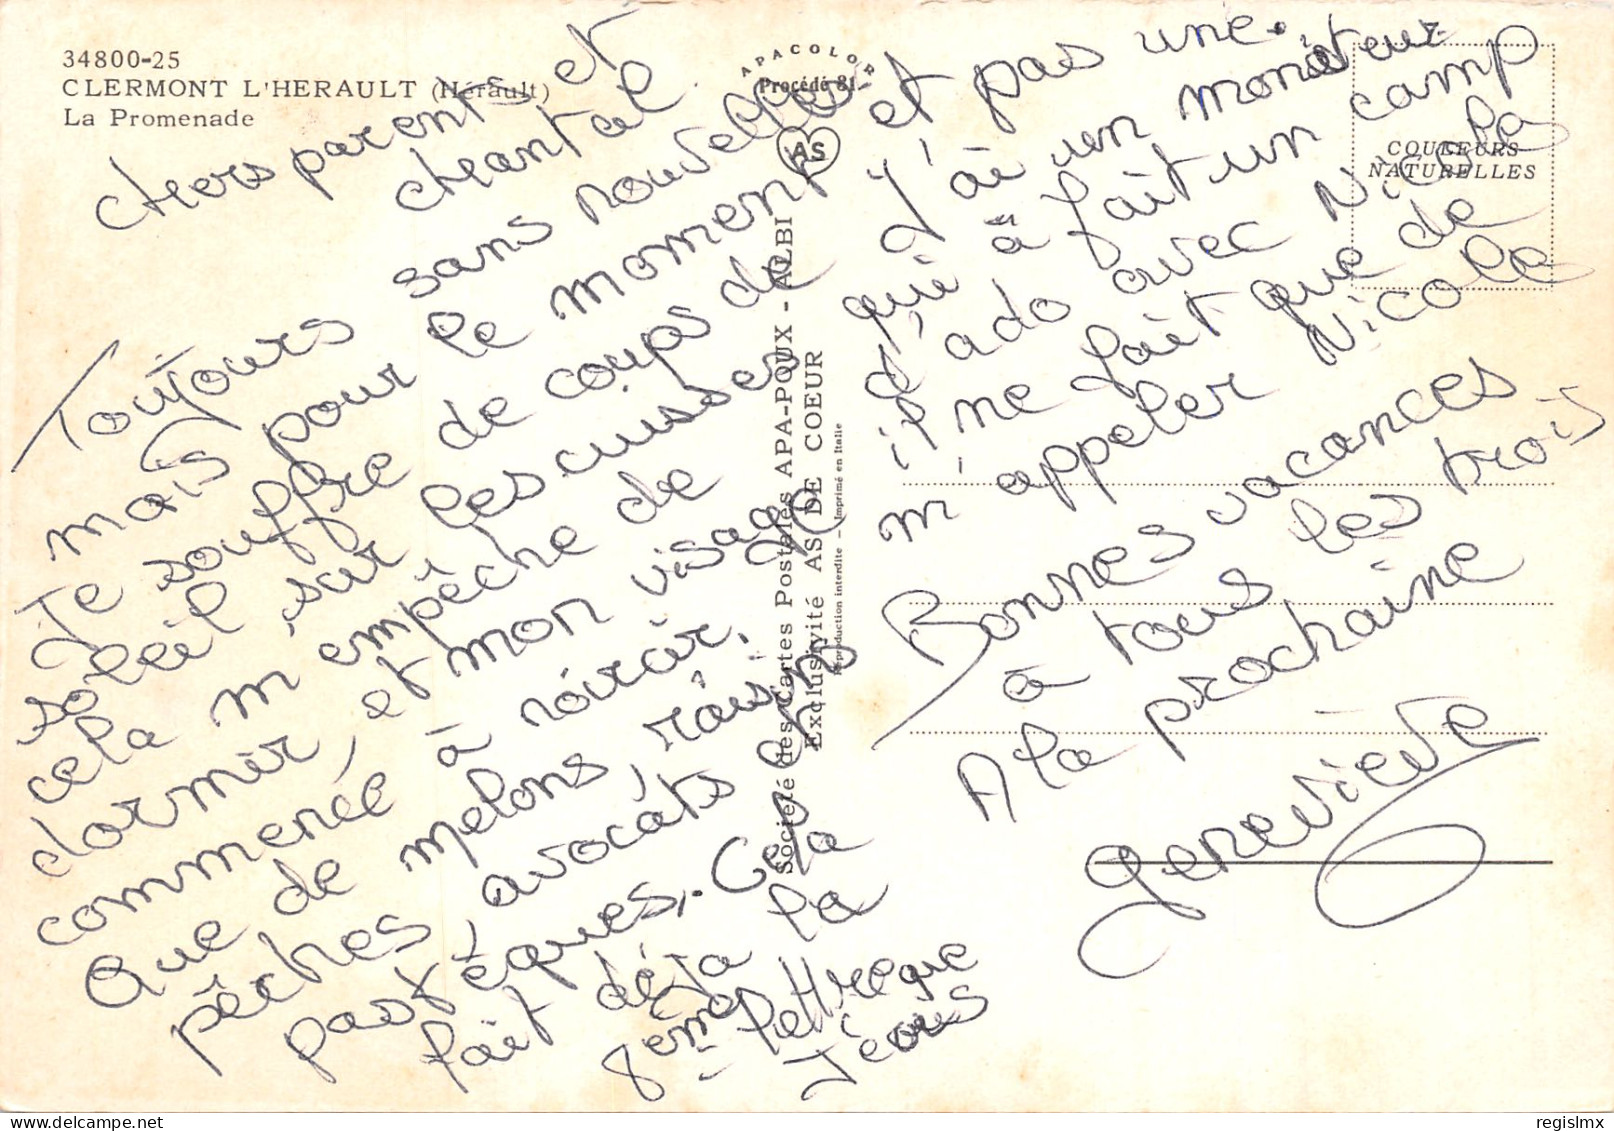 34800-25
CLERMONT L'HERAULT (Hérault)
La Promenade
APACOLOR
Procédé 81
AS
COULEURS
NATURELLES
Société des Cartes Postales APA-POUX - ALBI
Exclusivité AS DE COEUR
Reproduction interdite - Imprimé en Italie
chers parents et
chantal
Toujours sans nouvelles
mais pour le moment
Je souffre de coups de
soleil sur les cuisses
cela m empêche de
dormir, et mon visage
commence à noircir.
Que de melons, raisins
pêches, avocats en
pastèques. Cela
fait déjà la
8ème lettre que
j'écris
et pas une.
J'ai un moniteur
qui à fait un camp
d'ado avec Nicole
il ne fait que de
m'appeler Nicole
Bonnes vacances
à tous les trois
A la prochaine
Geneviève
regislmx